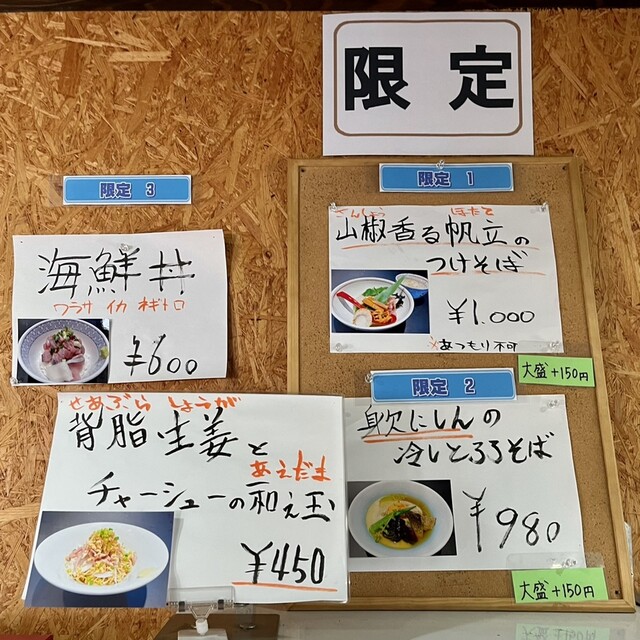 限定
限定 3
海鮮丼
ワラサ イカ ネギトロ
¥600
限定 1
さんしょう ほたて
山椒香る帆立の
つけそば
¥1.000
×あつもり不可
大盛+150円
限定 2
身欠にしんの
冷しとろろそば
¥980
大盛+150円
せあぶら しょうが
背脂生姜と
あえだま
チャーシューの和え玉
¥450